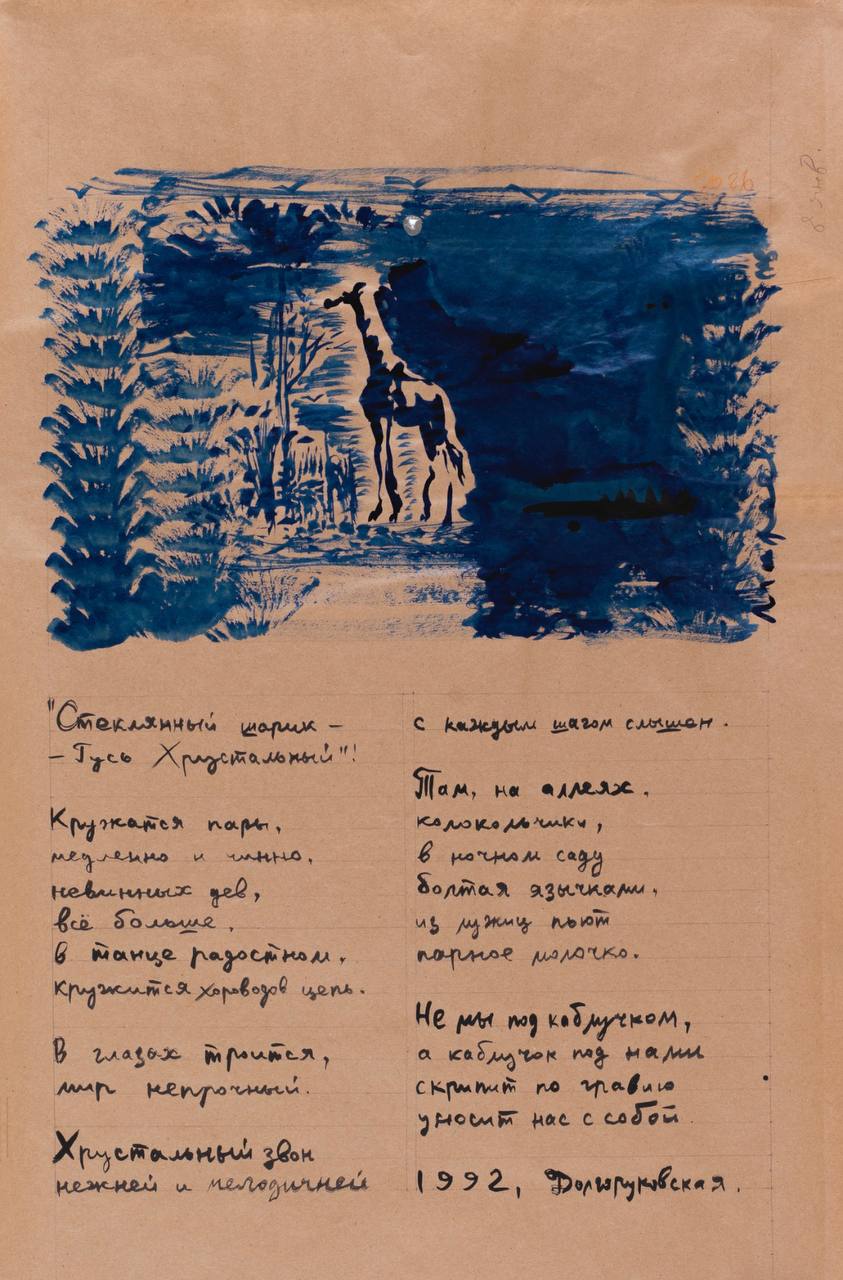 2026
8 янв.
"Стеклянный шарик –
– Гусь Хрустальный"!
Кружатся пары,
медленно и чинно,
невинных дев,
всё больше,
в танце радостном,
кружится хороводов цепь.
В глазах троится,
мир непрочный.
Хрустальный звон
нежней и мелодичней
с каждым шагом слышен.
Там, на аллеях,
колокольчики,
в ночном саду
болтая язычками,
из лужиц пьют
парное молочко.
Не мы под каблучком,
а каблучок под нами
скрипит по гравию
уносит нас с собой.
1992, Долгоруковская.